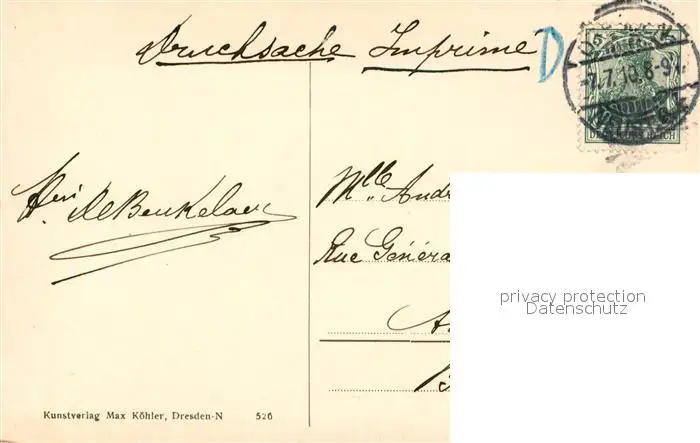 Drucksache Imprimé D
7.7.10.8-9
DEUTSCHES REICH
DeBeukelaer
Mlle Andr
Rue Généra
A
B
privacy protection
Datenschutz
Kunstverlag Max Köhler, Dresden-N 526